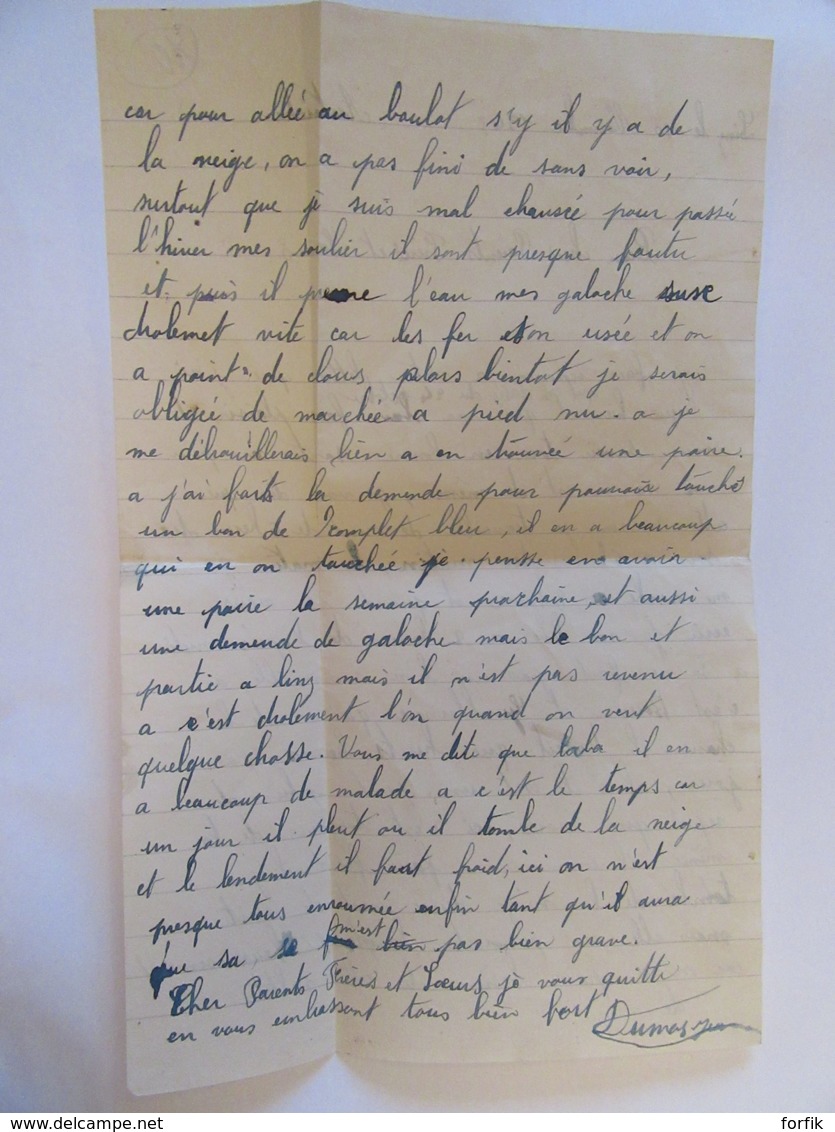 car pour allée au boulot s'y il y a de
la neige, on a pas fini de sans voir,
surtout que je suis mal chausée pour passée
l'hiver mes soulier il sont presque foutu
et puis il prene l'eau mes galoche suse
drolemet vite car les fer son usée et on
a point de clous plors bientot je serais
obligée de marchée a pied nu. a je
me débrouillerais bien a en trouvée une paire.
a j'ai faits la demende pour pouvoir touché
un bon de complet bleu, il en a beaucoup
qui en on touchée je pensse en avoir
une paire la semaine prochaine, et aussi
une demende de galoche mais le bon et
partie a linz mais il n'est pas revenu
a c'est drolement l'on quand on veut
quelque chosse. Vous me dite que laba il en
a beaucoup de malade a c'est le temps car
un jour il pleut ou il tombe de la neige
et le lendement il fait froid, ici on n'est
presque tous enroumée enfin tant qu'il aura
que sa, se n'est pas bien grave.
Cher Parents Frères et Soeurs je vous quitte
en vous embassant tous bien fort
Dumas
forfik